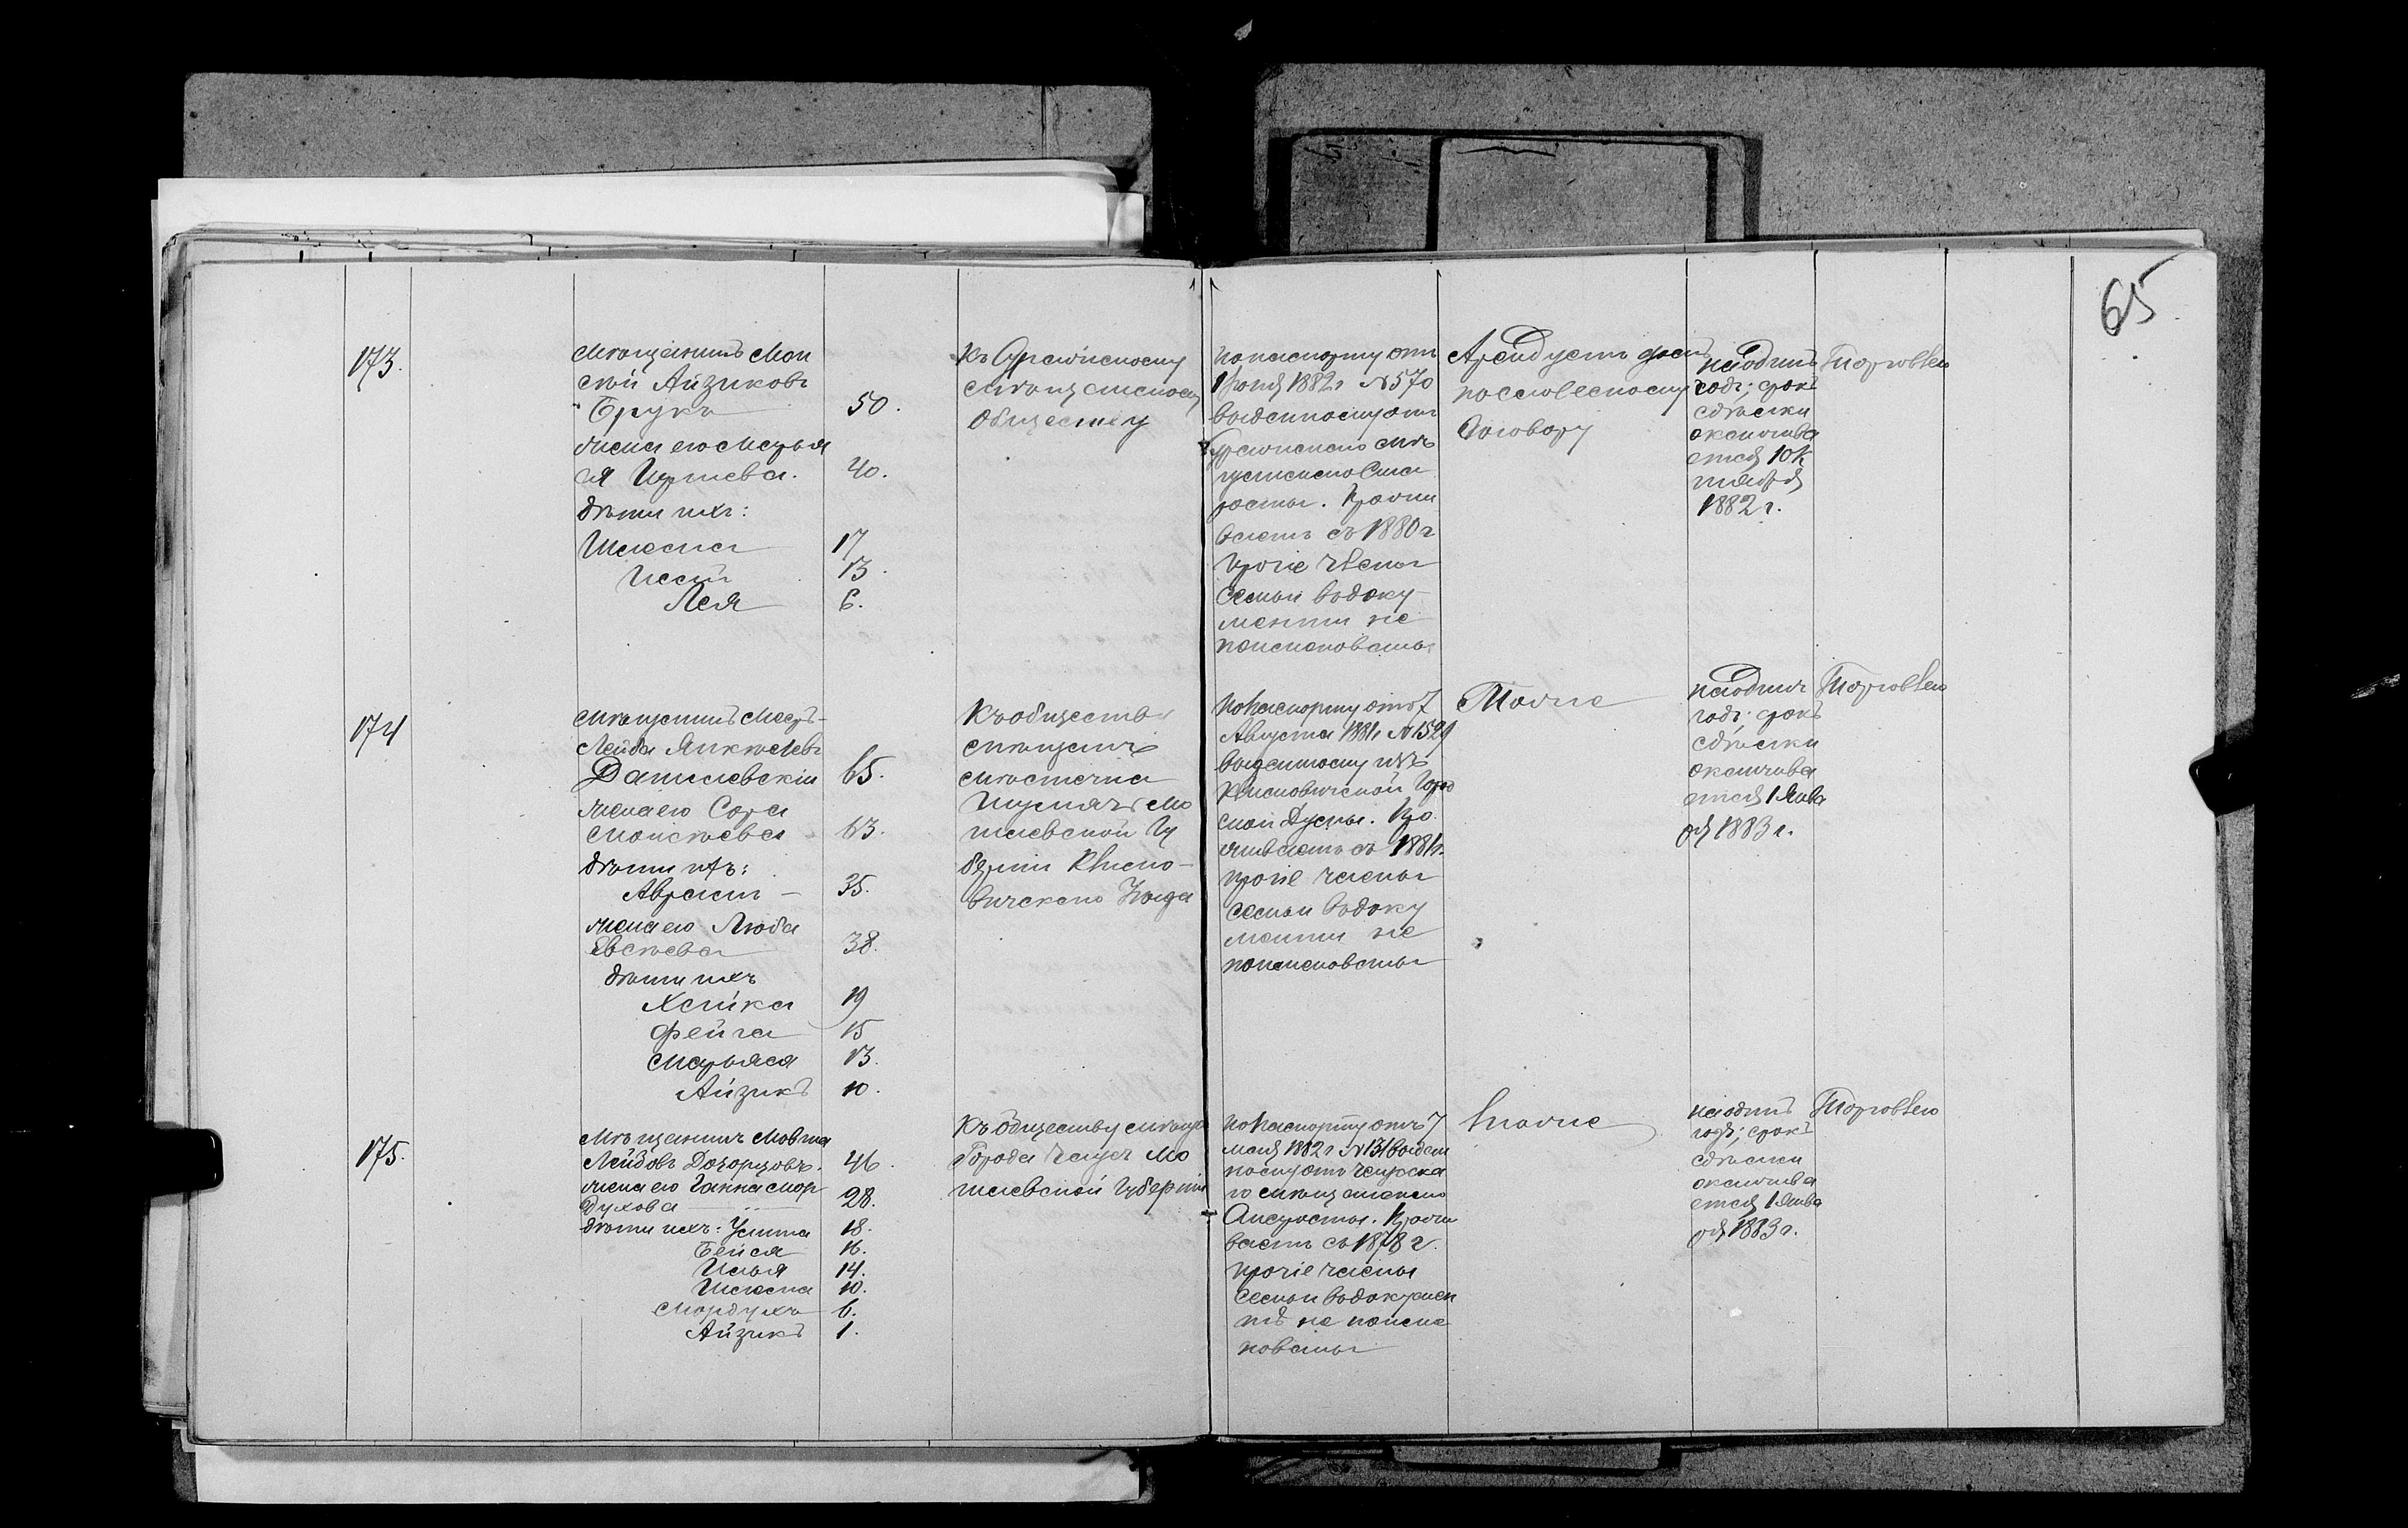 65
173.
Мѣщанинъ Мов
Айзиковъ
Брукъ 50.
жена его Марья
ся 40.
дѣти ихъ:
Шлёма 17
13.
Лея 6.
Къ
мѣщанскому
обществу
по паспорту отъ
1882 г № 570
выданному отъ
мѣ
щанскаго Ста
росты. Прожи
ваетъ съ 1880 г
прочіе члены
семьи въ доку
ментѣ не
поименованы
Арендуетъ домъ
по словесному
договору
на одинъ
годъ; срокъ
сдѣлки
оканчива
ется 1 Ок
тября
1882 г.
Торговлею
174
Мѣщанинъ
Лейба Янкелевъ
Данилевскій 65.
жена его Сора
63.
дѣти ихъ:
Абрамъ – 35.
жена его Люба
Евсѣева 38.
дѣти ихъ
Хайка 19
Фейга 15
Марьяся 13.
Айзикъ 10.
Къ обществу
мѣщанъ
мѣстечка
Шумячъ Мо
гилевской Гу
берніи Климо-
вичскаго Уѣзда
по паспорту отъ 7
Августа 1881 г № 1529
выданному изъ
Климовичской Город
ской Думы. Про
живаетъ съ 1881 г.
прочіе члены
семьи въ доку
ментѣ не
поименованы
Тоже
на одинъ
годъ; срокъ
сдѣлки
оканчива
ется 1 Янва
ря 1883 г.
Торговлею
175.
Мѣщанинъ Мовша
Лейбовъ 46.
жена его Ганна Мор
духова 28.
дѣти ихъ: 18.
Бейся 16.
Илья 14.
Шлёма 10.
Мордухъ 6.
Айзикъ 1.
Къ обществу мѣщан
Города Чаусъ Мо
гилевской Губерніи
по паспорту отъ 7
мая 1882 г № 131 выдан
ному отъ Чаусска
го мѣщанскаго
Старосты. Прожи
ваетъ съ 1878 г.
прочіе члены
семьи въ докумен
тѣ не поиме
нованы
тоже
на одинъ
годъ; срокъ
сдѣлки
оканчива
ется 1 Янва
ря 1883 г.
Торговлею